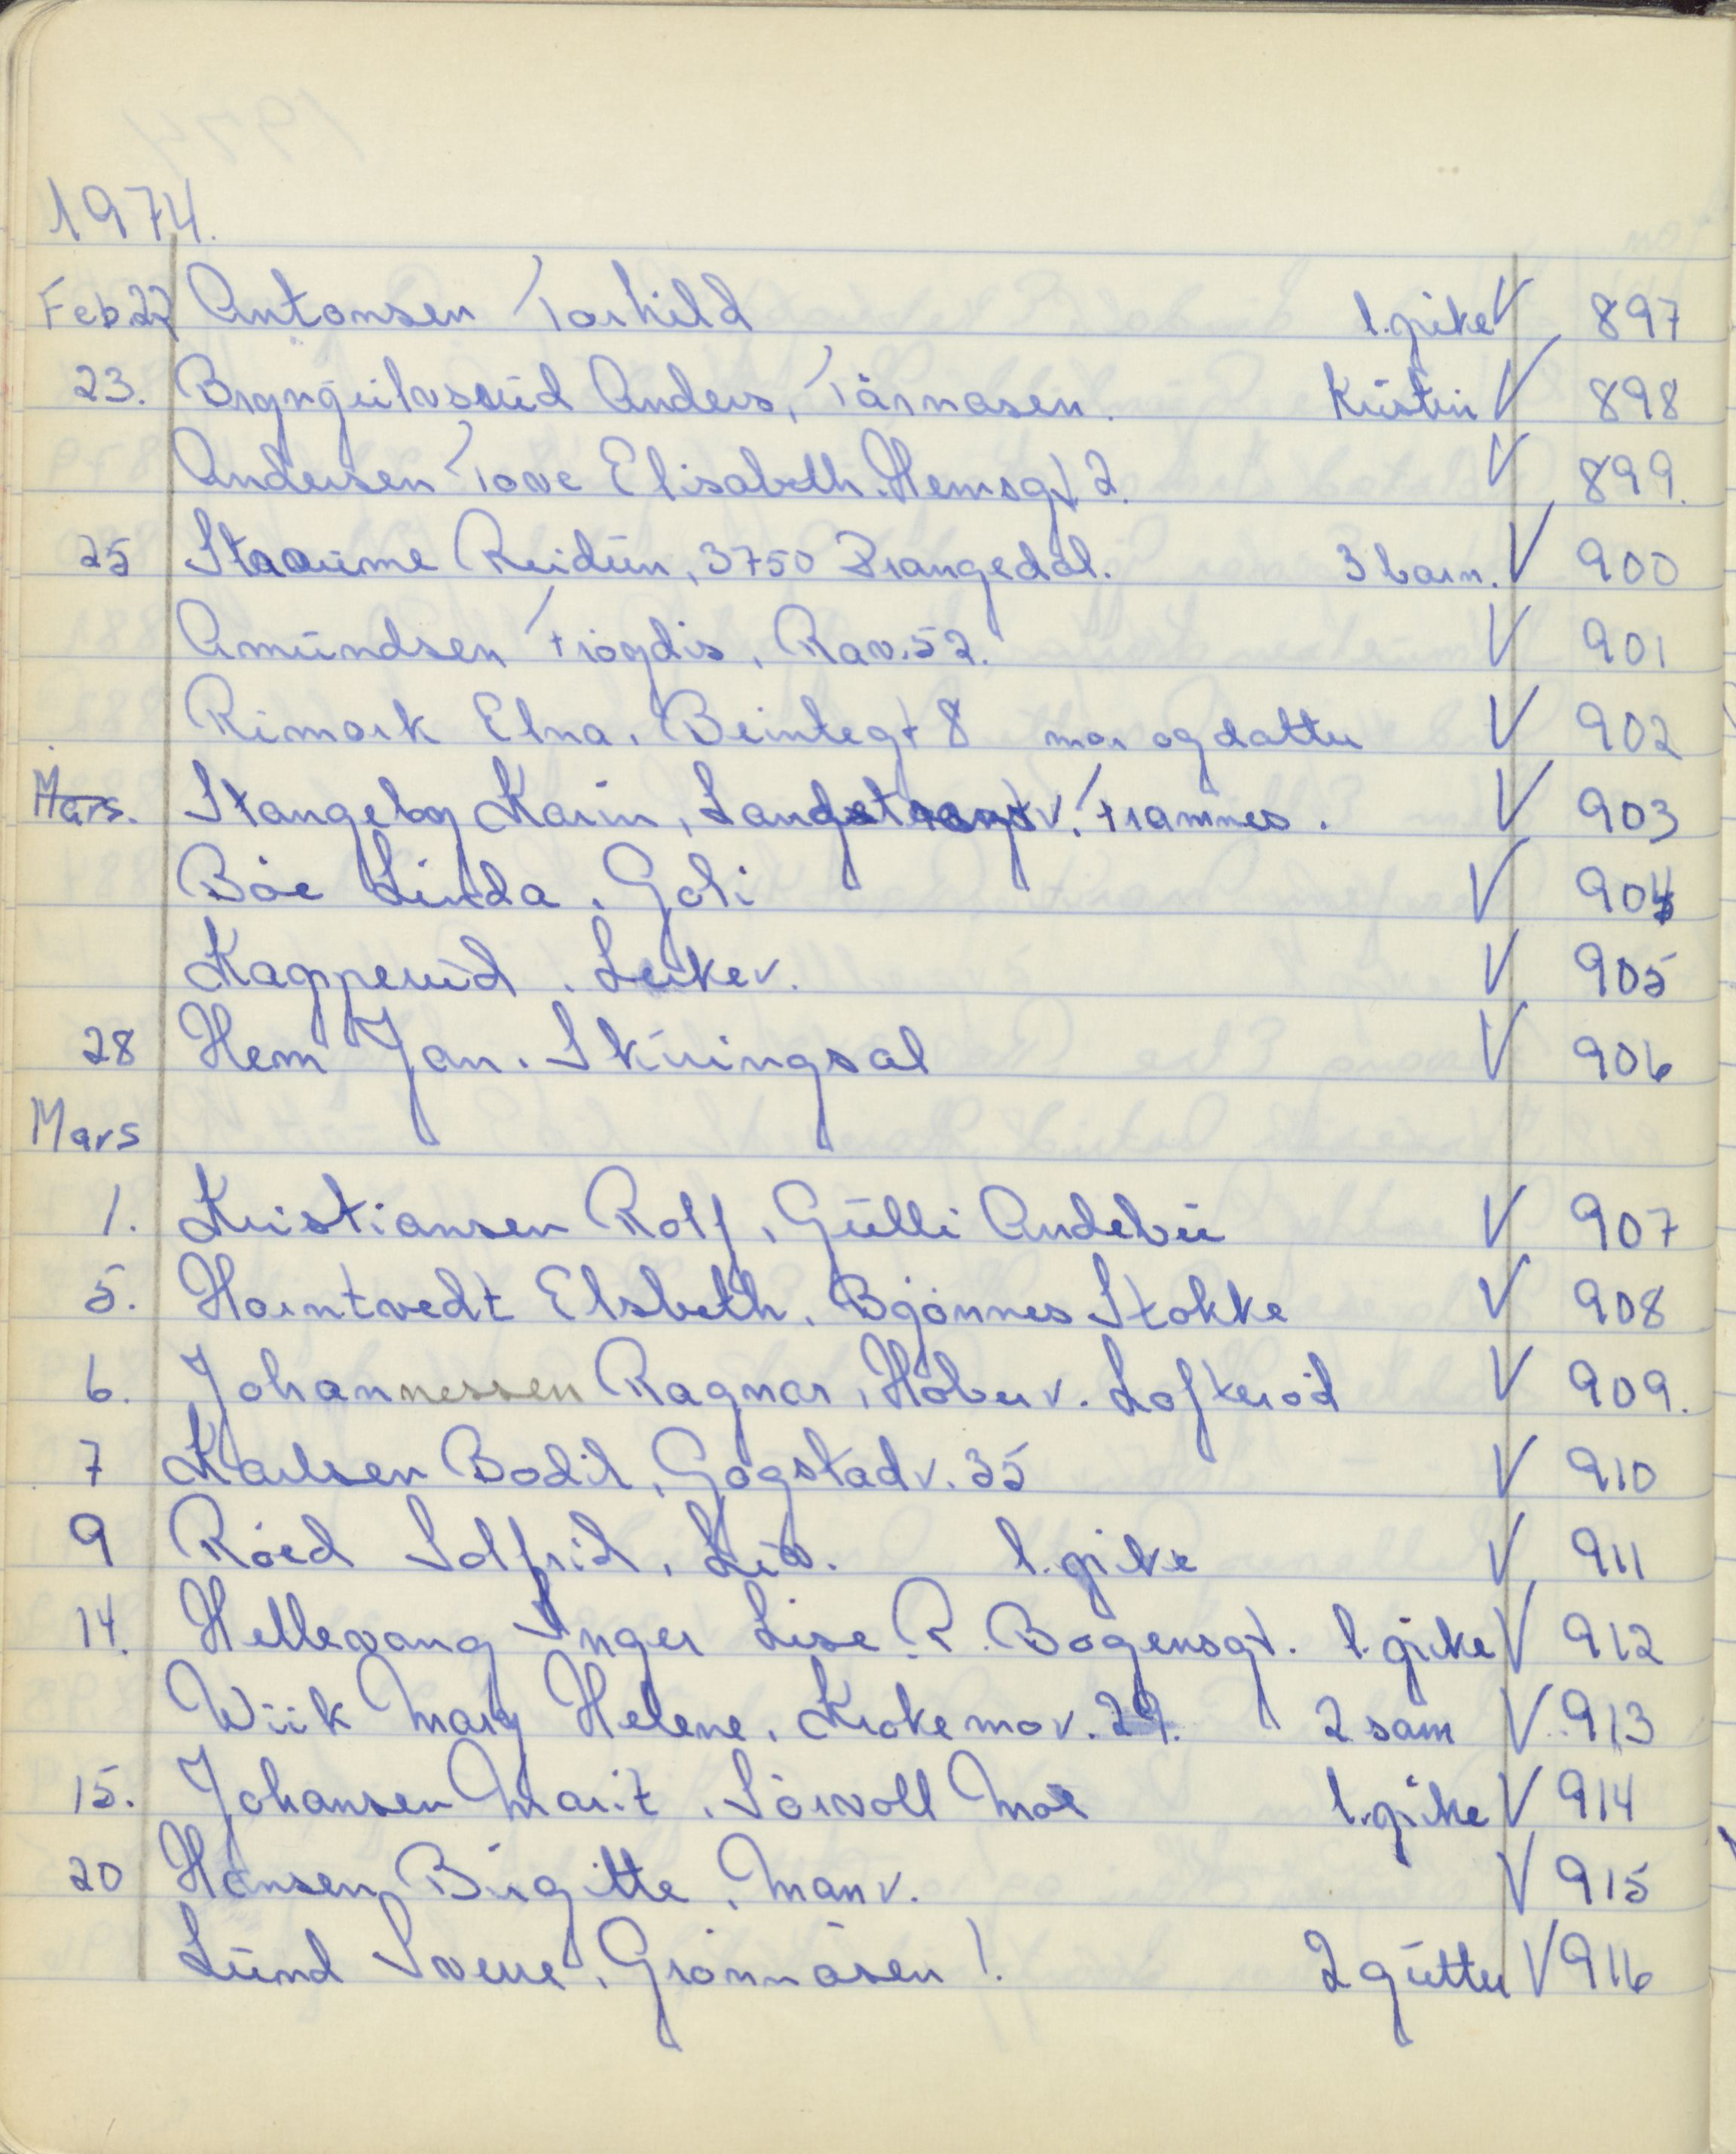 1974.
Feb 22 Antonsen Torhild 1. pike V 897
23. Bryngeilvsrud Anders, Tårnåsen. Kristin V 898
Andersen Tove Elisabeth. Hemsgt 2. V 899.
25 Staaume Reidun, 3750 Drangedal. 3 barn. V 900
Amundsen Frøydis, Rav. 52. V 901
Rimark Elna, Beintegt 8 mor og datter V 902
Mars. Stangeby Karin, v. Framnes. V 903
Bøe Linda, Goli V 904
Kapperud, V 905
28 Hem Jan. Skiringsal V 906
Mars
1. Kristiansen Rolf, Gulli Andebu V 907
5. Horntvedt Elsbeth, Bjønnes Stokke V 908
6. Johannessen Ragnar, v. Lofterød V 909.
7 Karlsen Bodil, Gogstadv. 35 V 910
9 Røed Solfrid, 1. pike V 911
14. Hellevang Inger Lise. R. Bogensgt. 1. pike V 912
Wiik Mary Helene, Krokemov. 29. 2 sam V 913
15. Johansen Marit, Sørvoll Moe 1. pike V 914
20 Hansen Birgitte, Manv. V 915
Lund Sverre, Grønnåsen 1. 2 gutter V 916